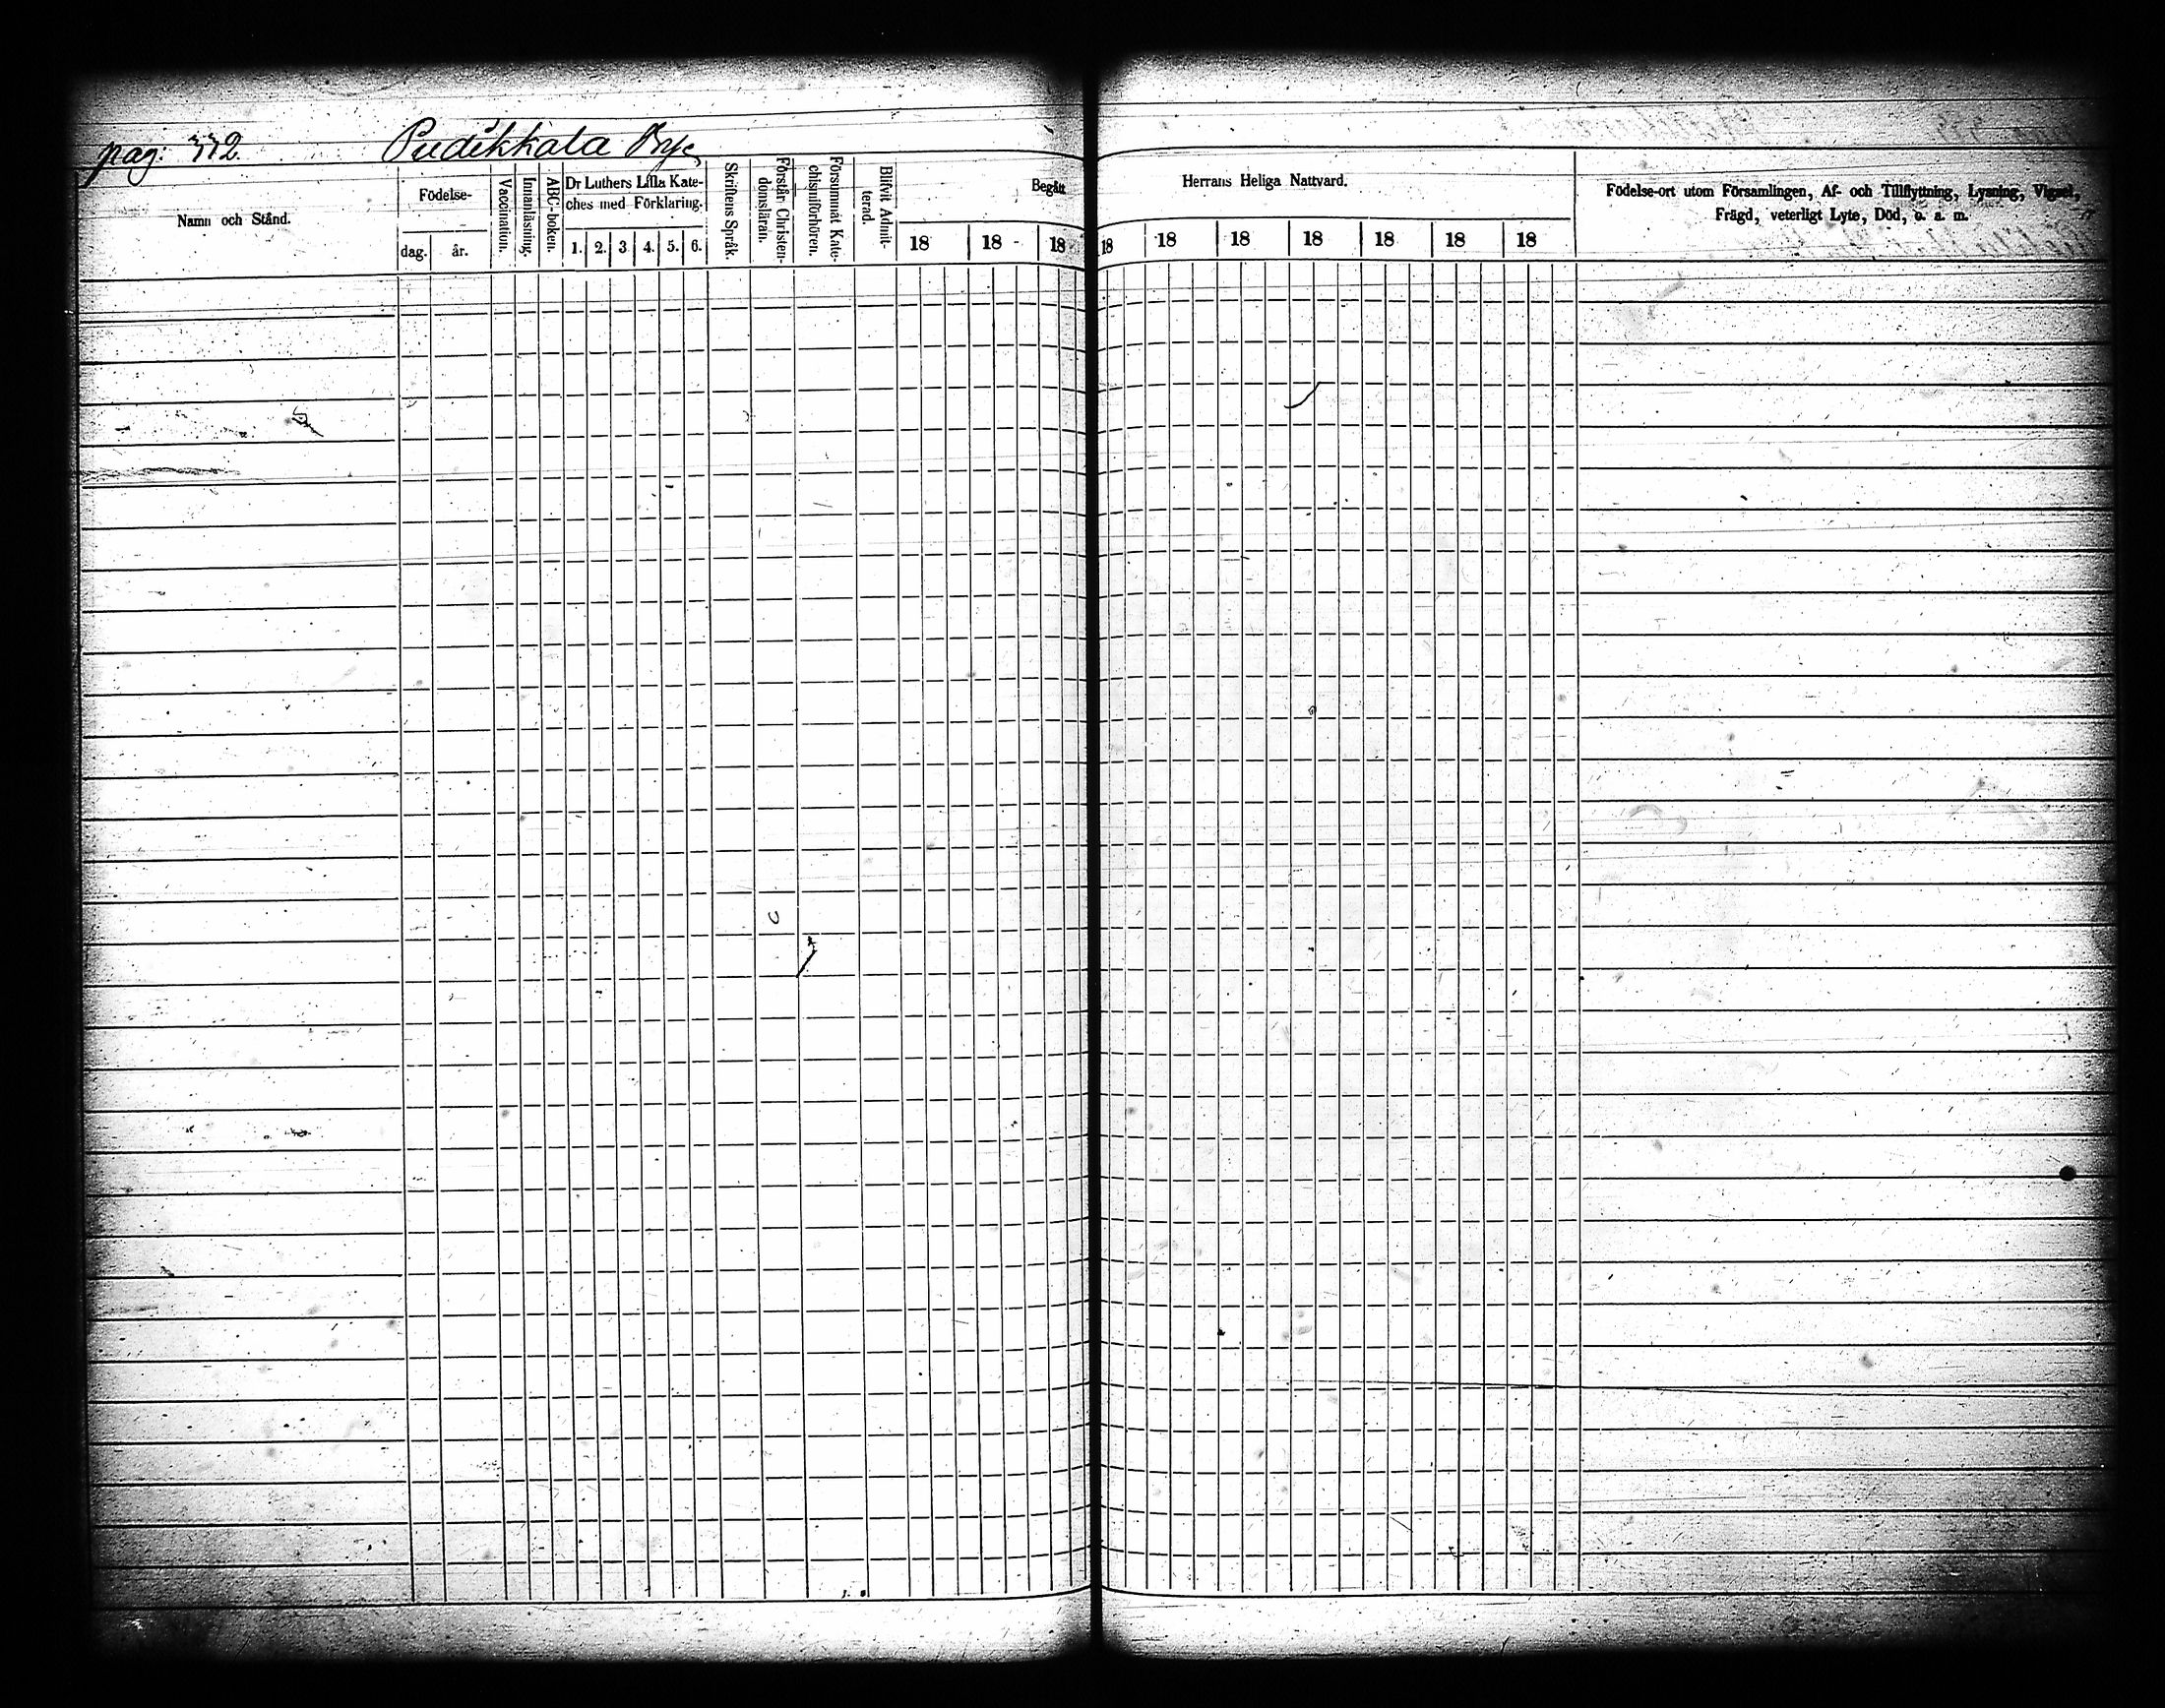 pag: 372. Pudikkala By
Namn och Stånd.
Födelse-
dag. år.
Vaccination.
Innanläsning.
ABC-boken.
Dr Luthers Lilla Kate-
ches med Förklaring.
1. 2. 3 4. 5. 6.
Skriftens Språk.
Förstår Christen-
domsläran.
Försummat Kate-
chismiförhören.
Blifvit Admit-
terad.
Begått Herrans Heliga Nattvard.
18 18 18 18 18 18 18 18 18 18
Födelse-ort utom Församlingen, Af- och Tillflyttning, Lysning, Vigsel,
Frägd, veterligt Lyte, Död, o. a. m.